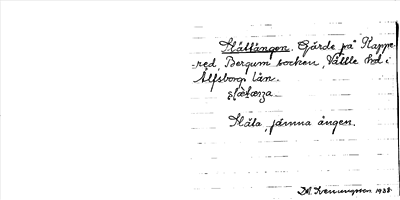 Slättängen. Gärde på Kappe-
red, Bergum socken, Vättle hd i
Älfsborgs län.
Släta, jämna ängen.
1938.